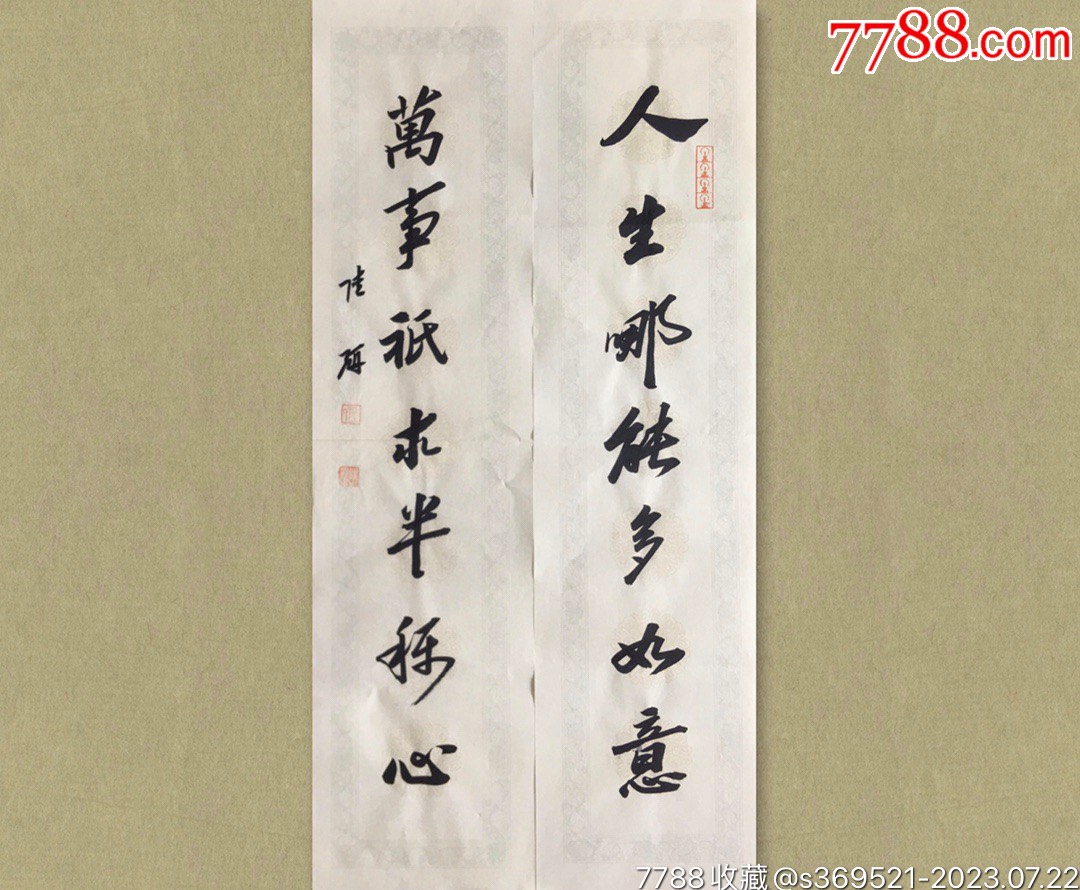 7788.com
人生哪能多如意
萬事祇求半称心
7788收藏@s369521-2023.07.22